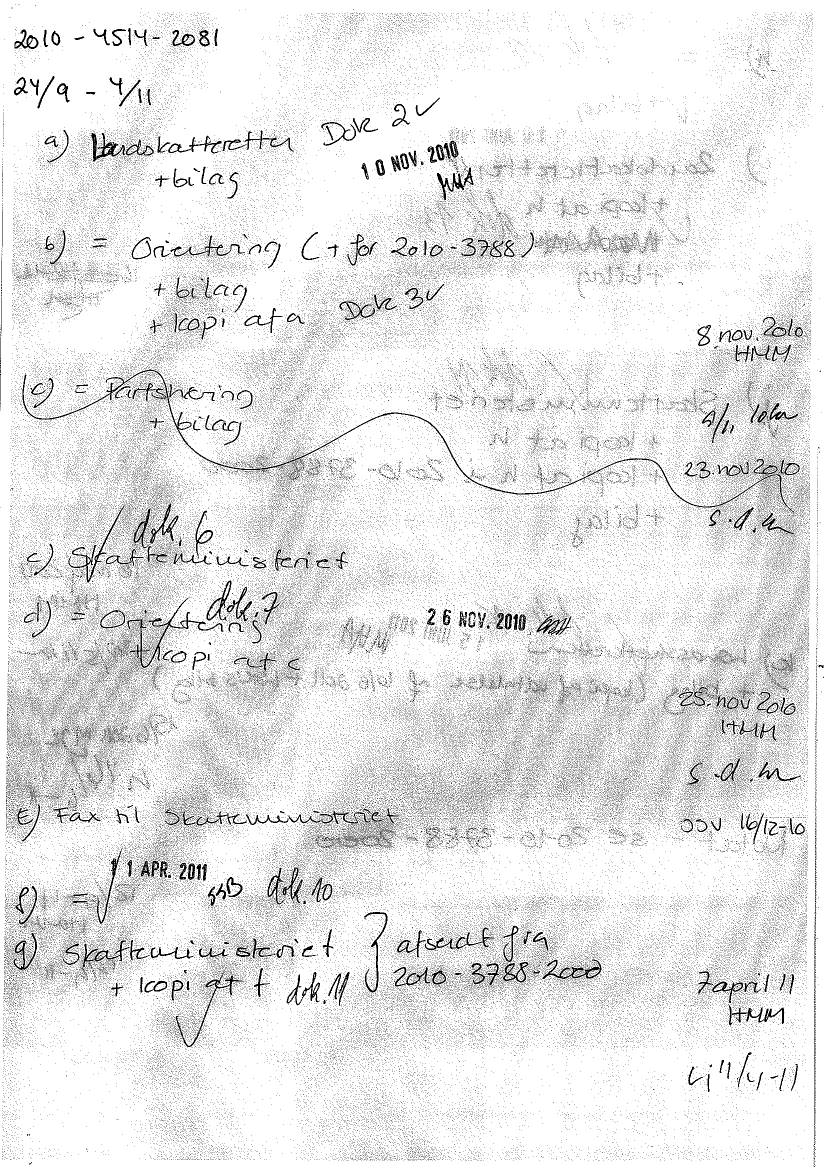 2010 - 4514 - 2081
24/9 - 4/11
a) Landsskatteretten Dok 2 ✓
+ bilag
10 NOV. 2010
b) = Orientering (+ for 2010-3788)
+ bilag
+ kopi af a Dok 3 ✓
8. nov. 2010
HMM
(c) = Partshøring
+ bilag
23. nov 2010
s.d.m
dok. 6
c) Skatteministeriet
dok. 7
d) = Orientering
26 NOV. 2010
+ kopi af c
25. nov 2010
HMM
s.d.m
E) Fax til Skatteministeriet
JOV 16/12-10
11 APR. 2011
f) = SSB dok. 10
g) Skatteministeriet } afsendt fra
+ kopi af f dok. 11 2010-3788-2000
7 april 11
HMM
11/4-11